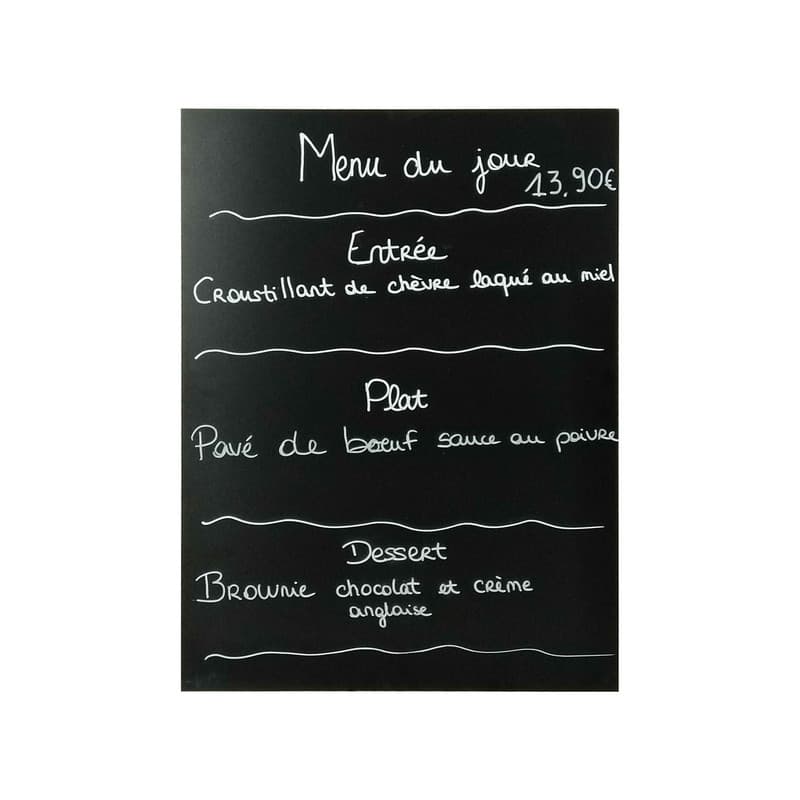 Menu du jour
13,90€
Entrée
Croustillant de chèvre laqué au miel
Plat
Pavé de bœuf sauce au poivre
Dessert
Brownie chocolat et crème
anglaise